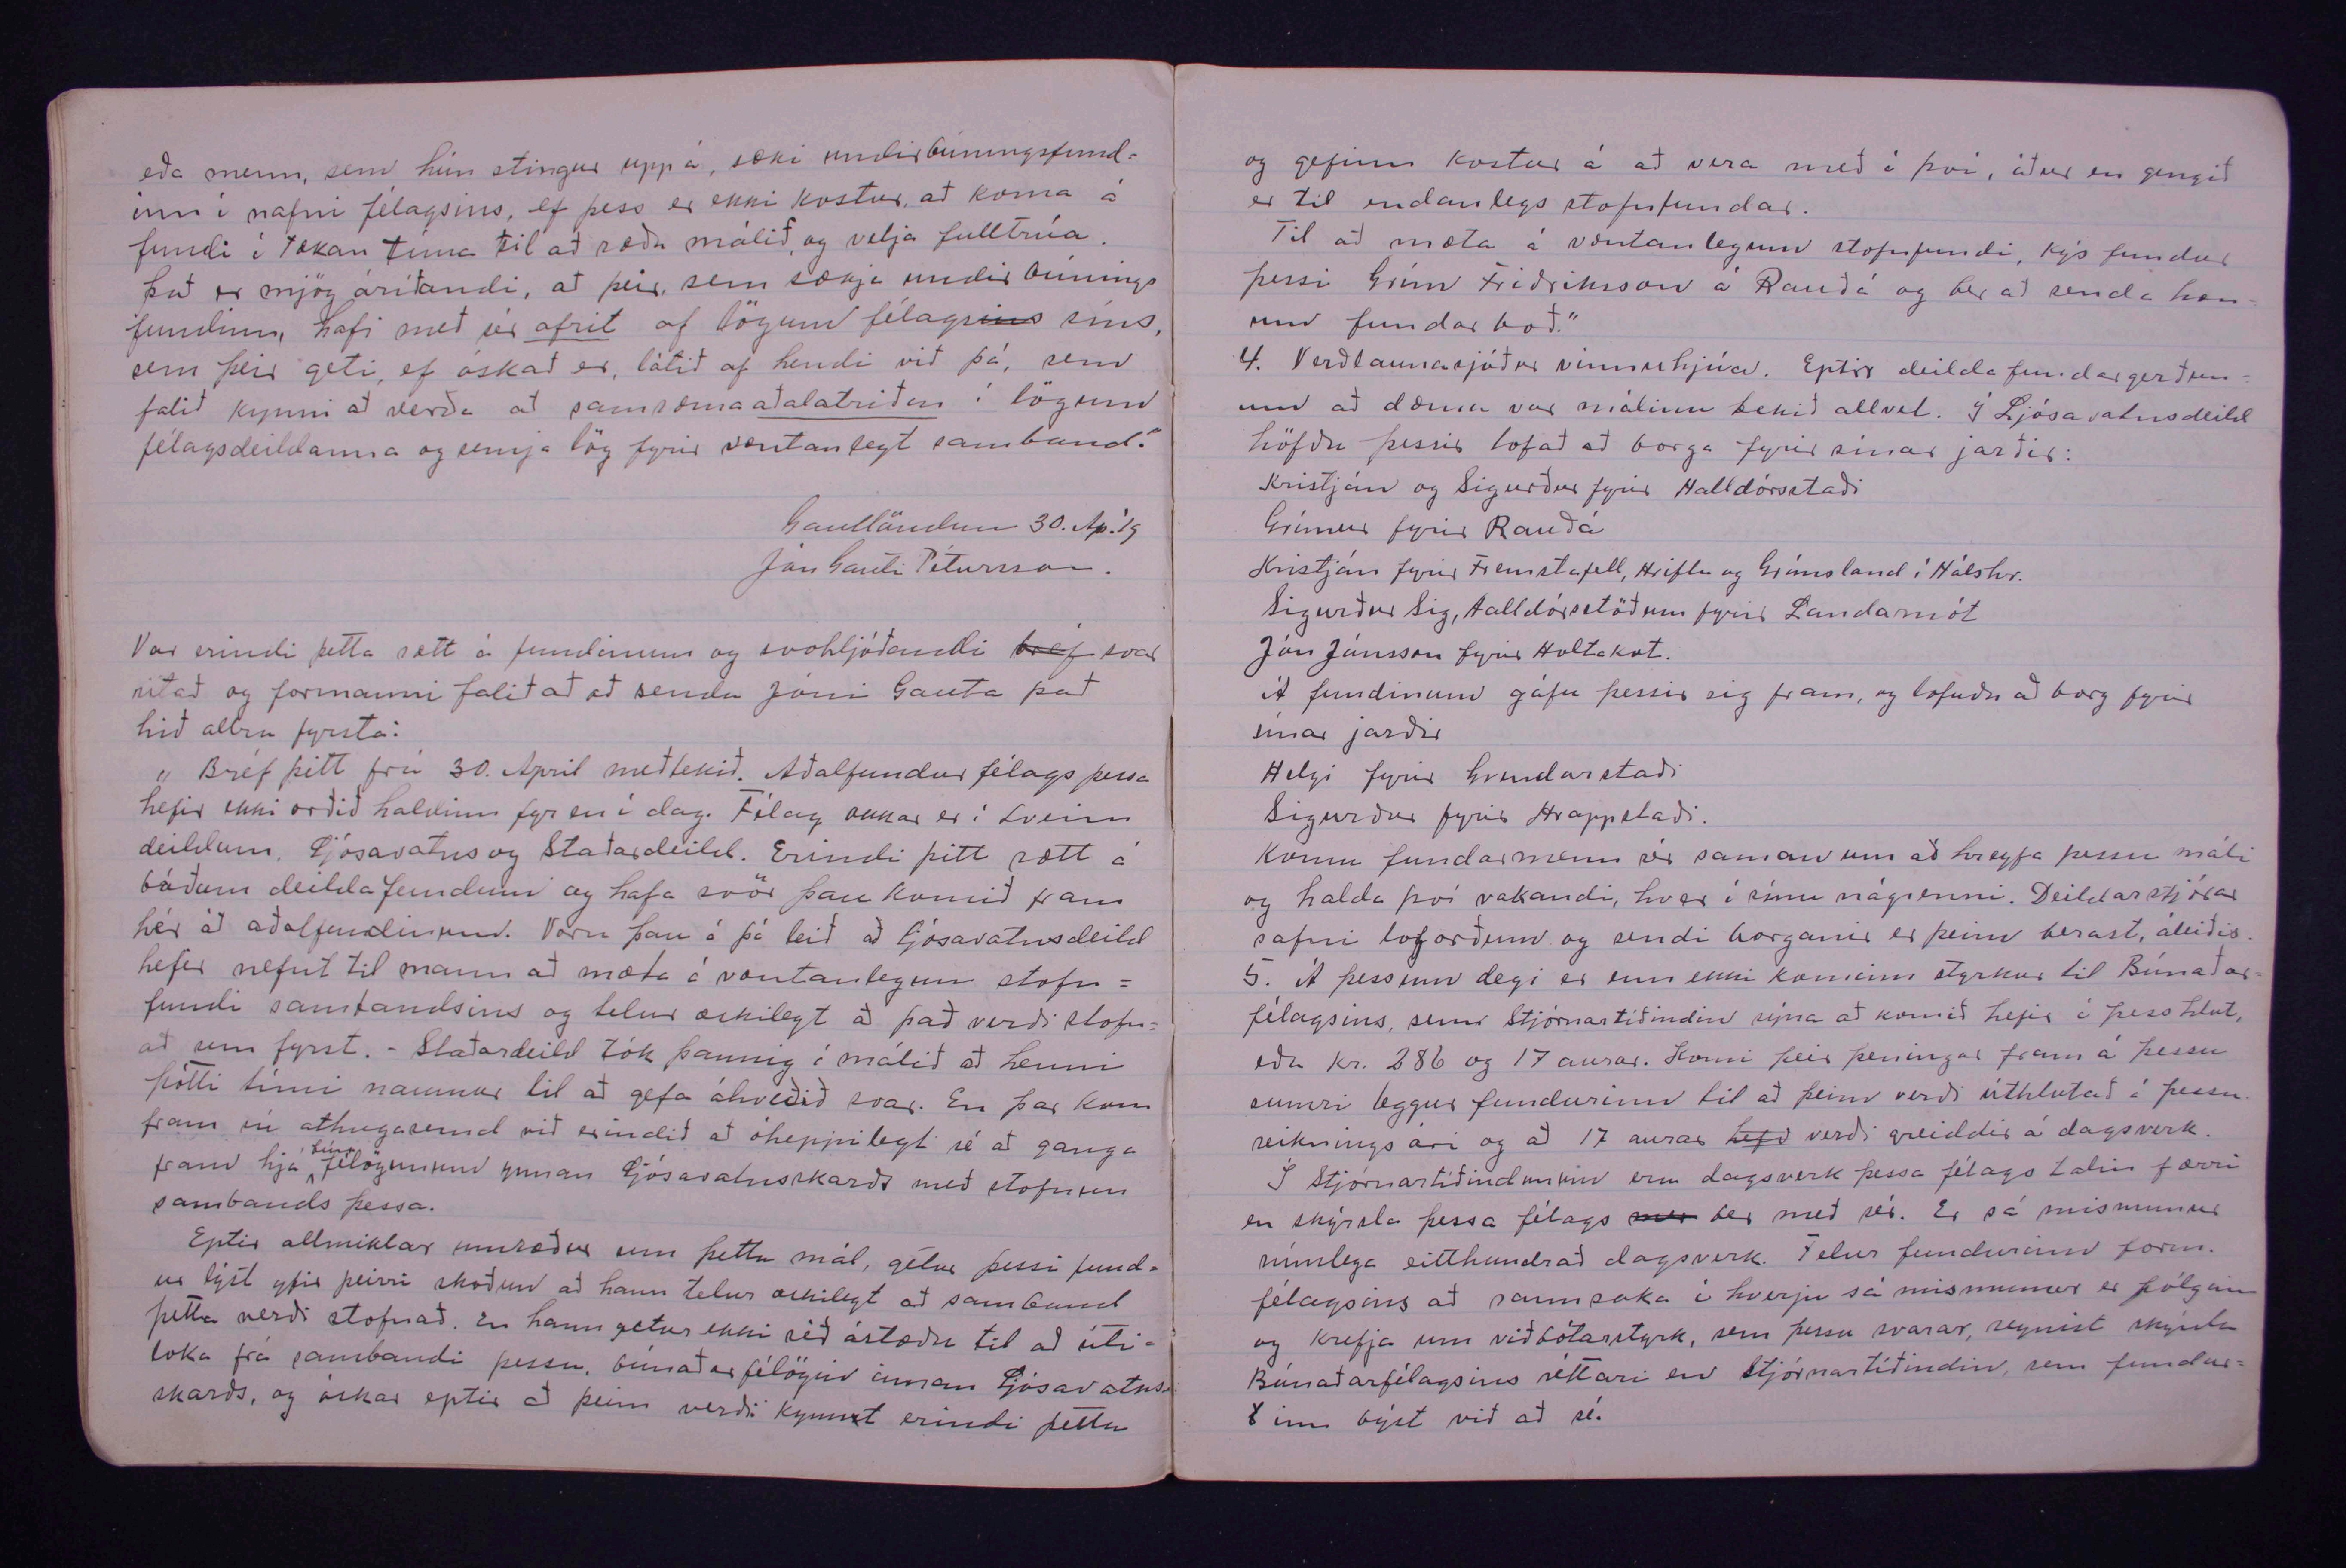 eða menn, sem hún stingur uppá, sæki undirbúningsfund-
inn í nafni félagsins, ef þess er ekki kostur, að koma á
fundi í tækan tíma til að ræða málið, og velja fulltrúa.
Það er mjög áríðandi, að þeir, sem sækja undirbúnings
fundinn, hafi með sér afrit af lögum félagsins síns,
sem þeir geti, ef óskað er, látið af hendi við þá, sem
falið kynni að verða að samræma aðalatriðin í lögum
félagsdeildanna og semja lög fyrir væntanlegt samband."
Gautlöndum 30. Ap. '19
Jón Gauti Pétursson.
Var erindi þetta rætt á fundinum og svohljóðandi bréf svar
ritað og formanni falið að að senda Jóni Gauta það
hið allra fyrsta:
„ Bréf þitt frá 30. Apríl meðtekið. Aðalfundur félags þessa
hefir ekki orðið haldinn fyr en í dag. Félag okkar er í tveim
deildum, Ljósavatns og Staðardeild. Erindi þitt rætt á
báðum deildafundum og hafa svör þau komið fram
hér á aðalfundinum. Voru þau á þá leið að Ljósavatnsdeild
hefir nefnt til mann að mæta á væntanlegum stofn=
fundi sambandsins og telur æskilegt að það verði stofn=
að sem fyrst. - Staðardeild tók þannig í málið að henni
þótti tími naumur til að gefa ákveðið svar. En þar kom
fram sú athugasemd við erindið at óheppilegt sé að ganga
fram hjá félögunum ynnan Ljósavatnsskarðs með stofnun
sambands þessa.
Eptir allmiklar umræður um þetta mál, getur þessi fund-
ur lýst yfir þeirri skoðun að hann telur æskilegt að samband
þetta verði stofnað. En hann getur ekki séð ástæðu til að úti-
loka frá sambandi þessu, búnaðarfélögin innan Ljósavatns-
skarðs, og óskar eptir að þeim verði kynnt erindi þetta
og gefinn kostur á að vera með í því, áður en gengið
er til endanlegs stofnfundar.
Til að mæta á væntanlegum stofnfundi, kýs fundur
þessi Grím Friðriksson á Rauðá og ber að senda hon-
um fundarboð."
4. Verðlaunasjóður vinnuhjúa. Eptir deildafundargerðun=
um að dæma var málinu tekið allvel. Í Ljósavatnsdeild
höfðu þessir lofað að borga fyrir sínar jarðir:
Kristján og Sigurður fyrir Halldórsstaði
Grímur fyrir Rauðá
Kristján fyrir Fremstafell, Hriflu og Grímsland í Hálshr.
Sigurður Sig, Halldórsstöðum fyrir Landamót
Jón Jónsson fyrir Holtakot.
Á fundinum gáfu þessir sig fram, og lofuðu að borg fyrir
sínar jarðir
Helgi fyrir Grundarstaði
Sigurður fyrir Hrappstaði.
Komu fundarmenn sér saman um að hreyfa þessu máli
og halda því vakandi, hver í sínu nágrenni. Deildarstjórar
safni loforðum og sendi borganir er þeim berast, áleiðis.
5. Á þessum degi er enn ekki kominn styrkur til Búnaðar=
félagsins, sem Stjórnartíðindin sýna að komið hefir í þess hlut,
eða kr. 286 og 17 aurar. Komi þeir peningar fram á þessu
sumri leggur fundurinn til að þeim verði úthlutað á þessu
reikningsári og að 17 aurar hefð verði greiddir á dagsverk.
Í Stjórnartíðindunum eru dagsverk þessa félags talin færri
en skýrsla þessa félags mer ber með sér. Er sá mismunur
rúmlega eitthundrað dagsverk. Felur fundurinn form.
félagsins að rannsaka í hverju sá mismunur er fólginn
og krefja um viðbótarstyrk, sem þessu svarar, reynist skýrsla
Búnaðarfélagsins réttari en Stjórnartíðindin, sem fundur=
inn býst við að sé.